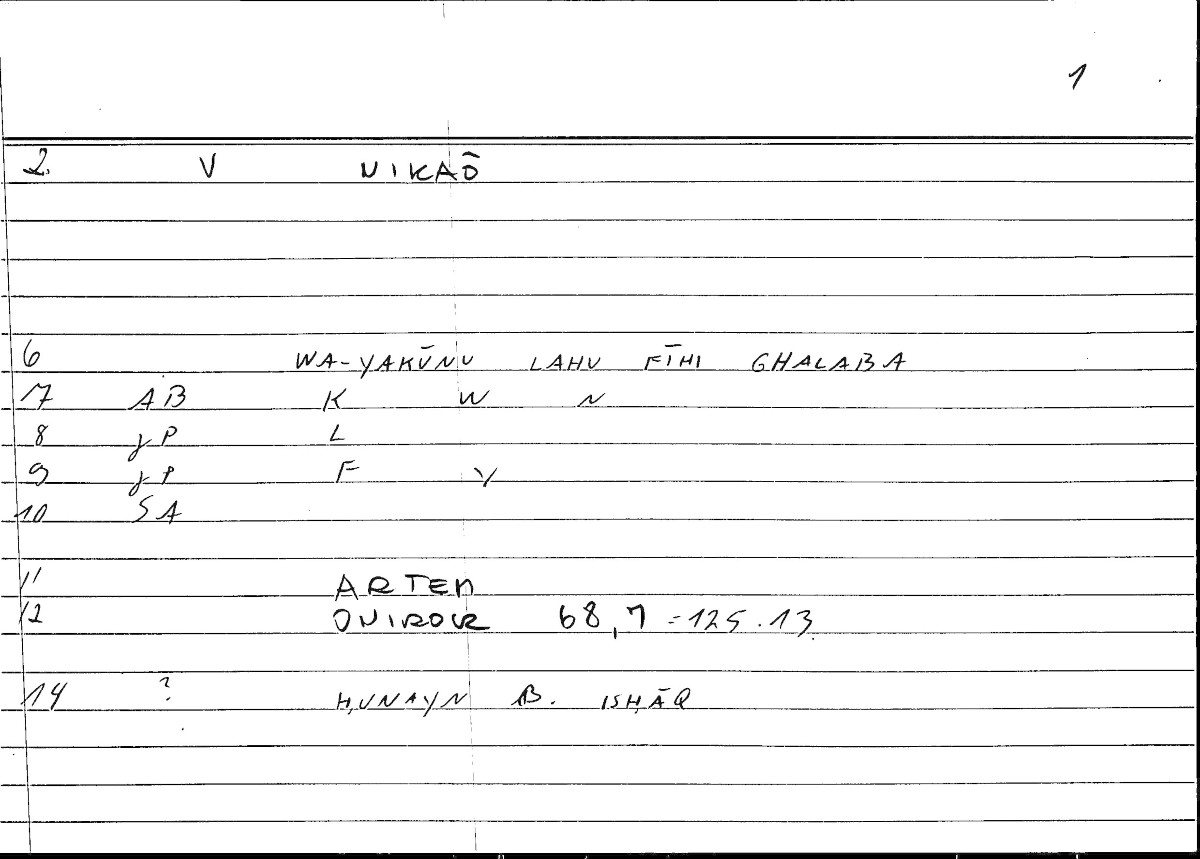 1
2. V NIKAŌ
6 WA-YAKŪNU LAHU FĪHI GHALABA
7 AB K W N
8 jP L
9 jP F Y
10 SA
11 ARTEM
12 ONIROCR 68,7 = 125.13
14 ? ḤUNAYN B. ISḤĀQ